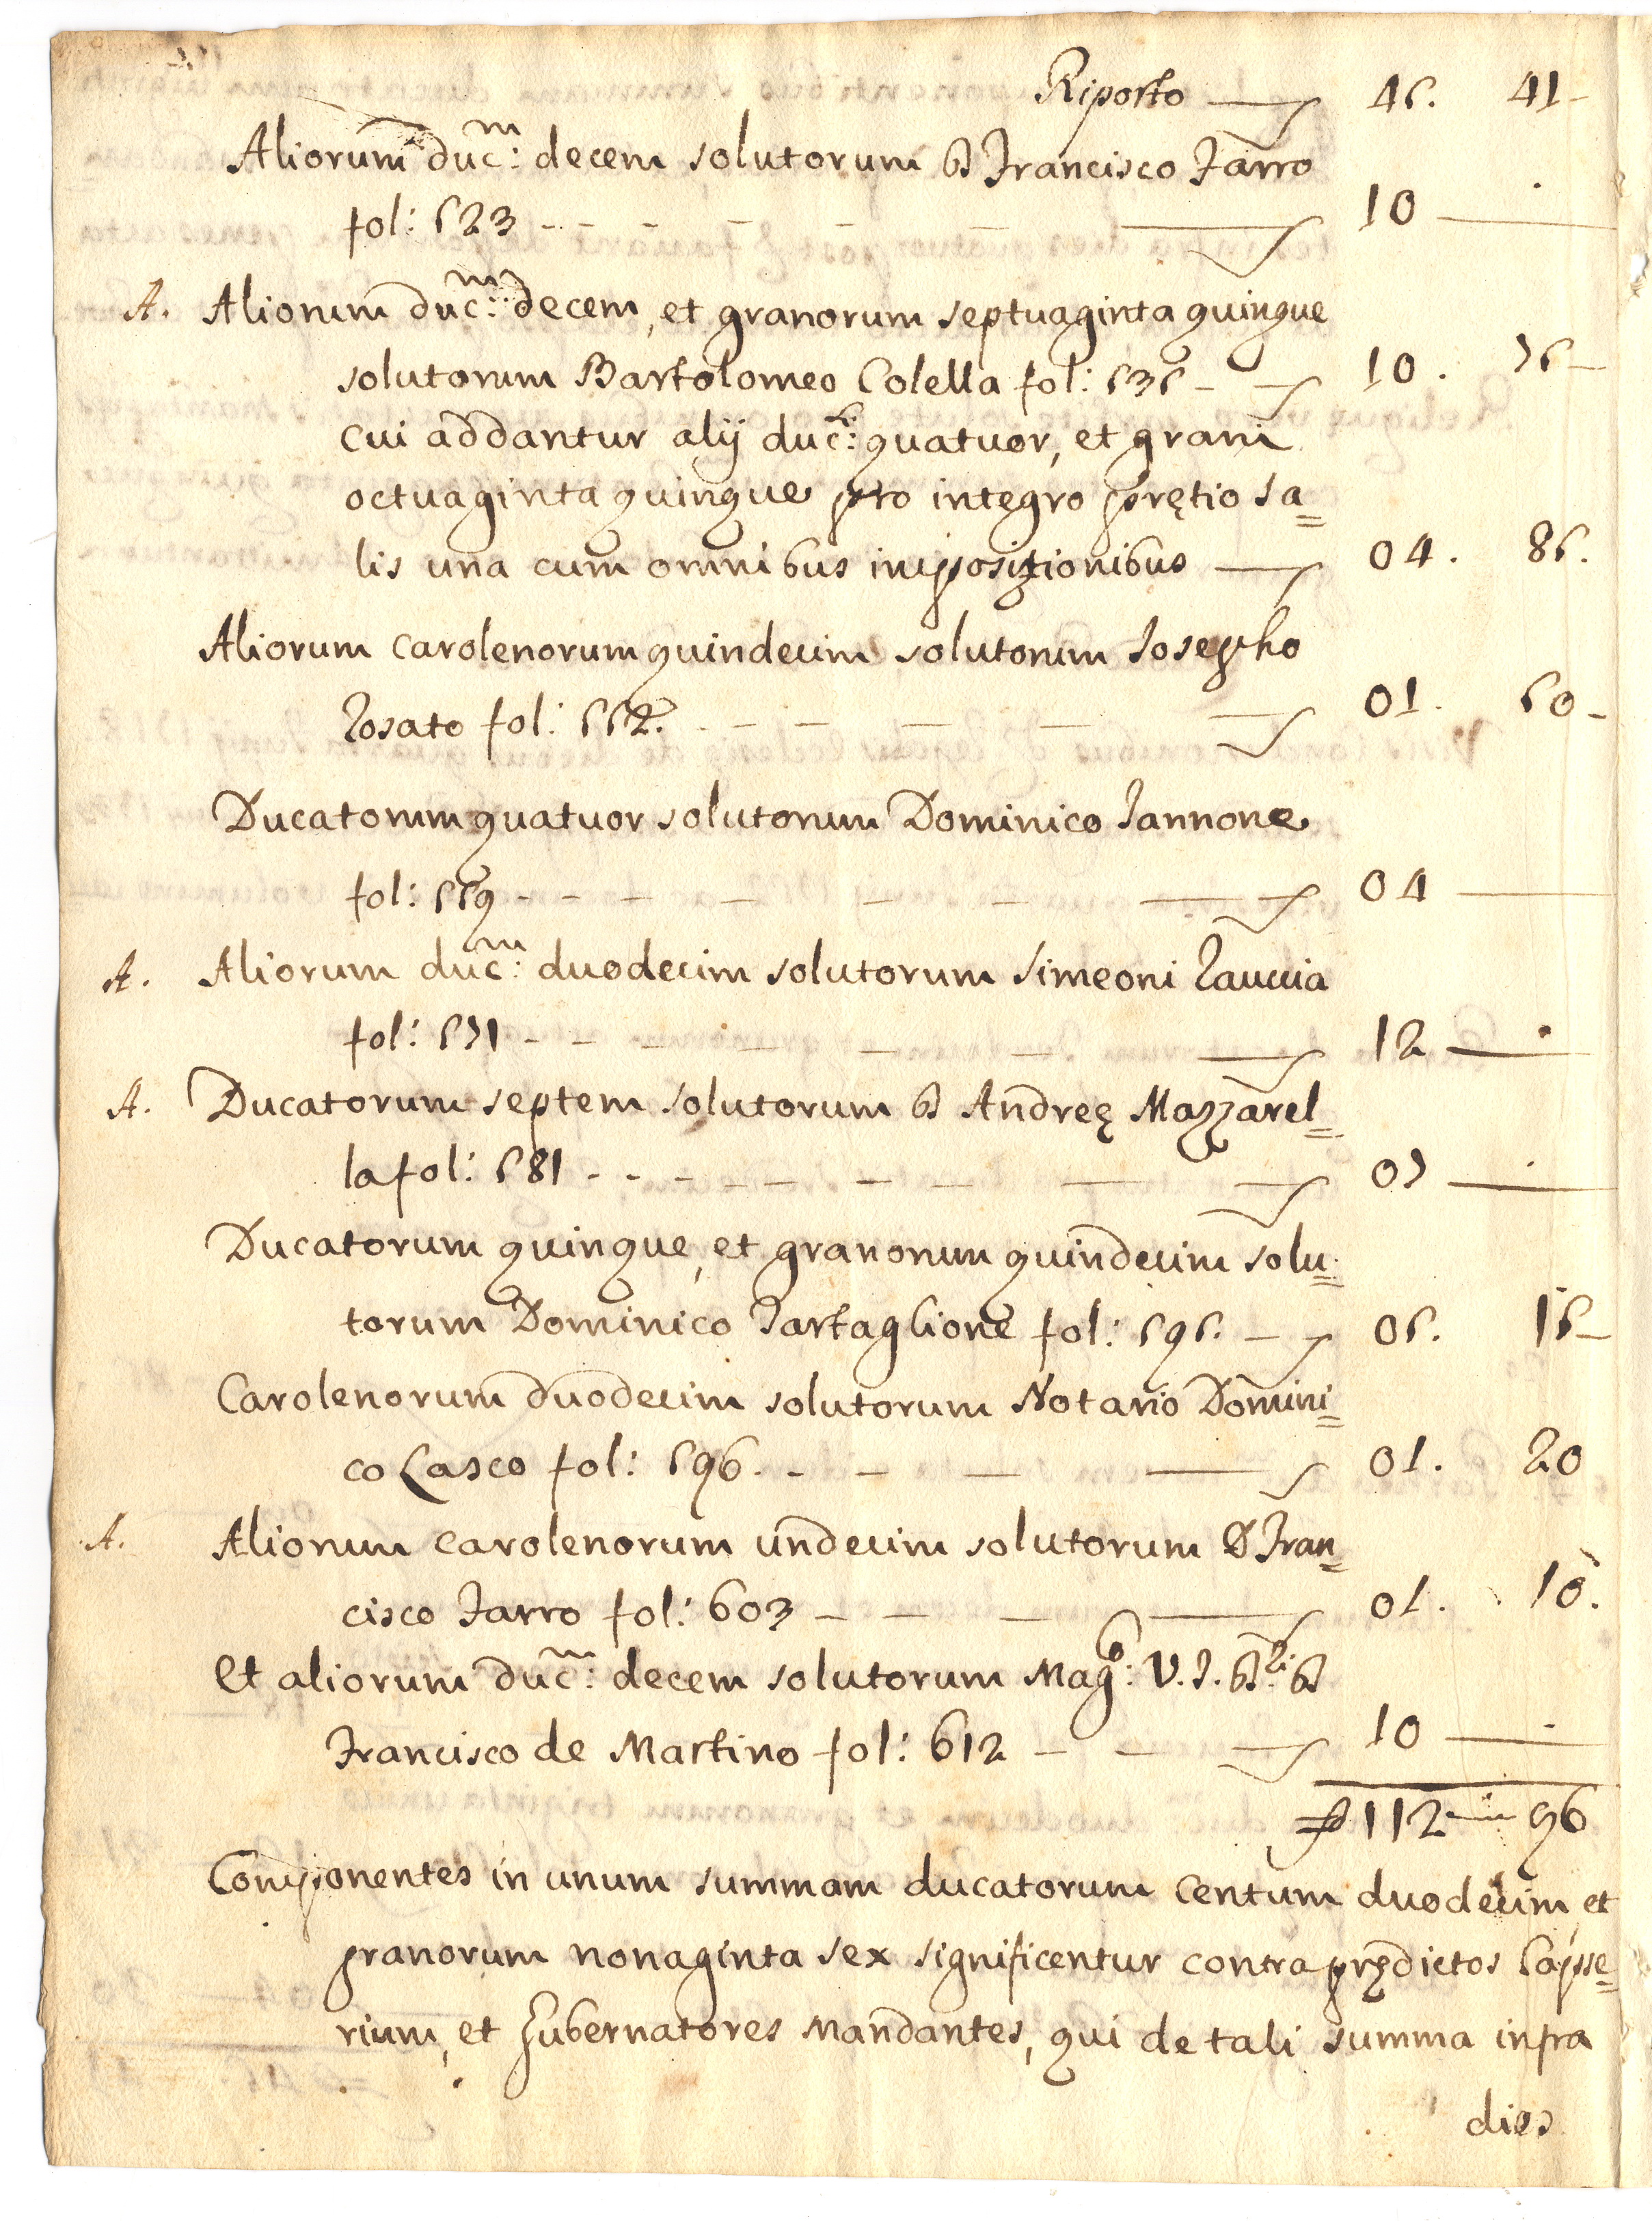 Riposto 45. 41
Aliorum duc:m decem solutorum D Francisco Farro
fol: 523 10
A. Aliorum duc:m decem, et granorum septuaginta quinque
solutorum Bartolomeo Colella fol: 535 10. 75
cui addantur alij duc:ti quatuor, et grani
octuaginta quinque pro integro prętio sa=
lis una cum omnibus impositionibus 04. 85.
Aliorum carolenorum quindecim solutorum Iosepho
Rosato fol: 552. 01. 50
Ducatorum quatuor solutorum Dominico Iannone
fol: 559 04
A. Aliorum duc:m duodecim solutorum Simeoni
fol: 571 12
A. Ducatorum septem solutorum D Andreę Mazzarel=
la fol: 581 07
Ducatorum quinque, et granorum quindecim solu=
torum Dominico Tartaglione fol: 595. 05. 15
Carolenorum duodecim solutorum Notario Domini=
co Casco fol: 596. 01. 20
A. Aliorum carolenorum undecim solutorum D Fran=
cisco Farro fol: 603 01. 10.
Et aliorum duc:m decem solutorum Mag:co V. J. D:ri D
Francisco de Martino fol: 612 10
112 96
Componentes in unum summam ducatorum centum duodecim et
granorum nonaginta sex significentur contra prędictos Casse=
rium, et Gubernatores mandantes, qui de tali summa infra
dies